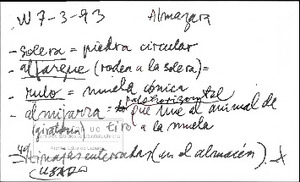 W 7-3-93 Almazara
- solera = piedra circular
- alfarque (rodea a la solera) =
- rulo = muela cónica
palo horizontal
- almijarra = que une el animal de
(giratoria) tiro a la muela
- tinajas enterradas (en el almacén)